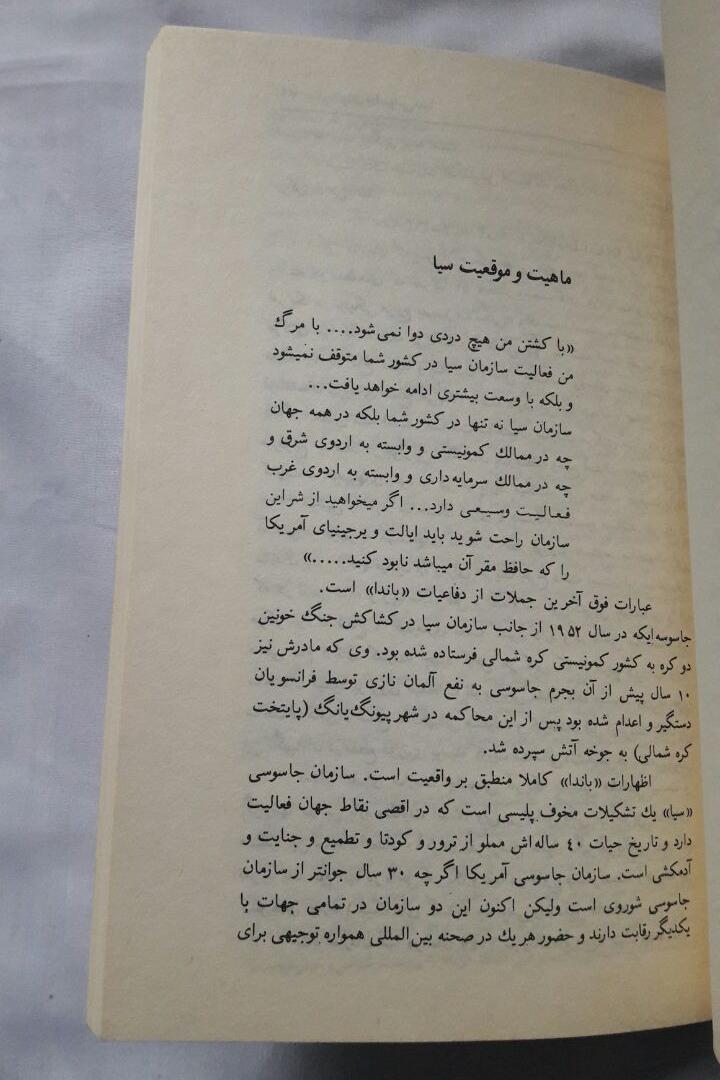 ماهیت و موقعیت سیا
«با کشتن من هیچ دردی دوا نمی‌شود.... با مرگ
من فعالیت سازمان سیا در کشور شما متوقف نمیشود
و بلکه با وسعت بیشتری ادامه خواهد یافت...
سازمان سیا نه تنها در کشور شما بلکه در همه جهان
چه در ممالک کمونیستی و وابسته به اردوی شرق و
چه در ممالک سرمایه‌داری و وابسته به اردوی غرب
فعالیت وسیعی دارد... اگر میخواهید از شر این
سازمان راحت شوید باید ایالت ویرجینیای آمریکا
را که حافظ مقر آن میباشد نابود کنید.....»
عبارات فوق آخرین جملات از دفاعیات «باندا» است.
جاسوسه‌ایکه در سال ۱۹۵۲ از جانب سازمان سیا در کشاکش جنگ خونین
دو کره به کشور کمونیستی کره شمالی فرستاده شده بود. وی که مادرش نیز
۱۰ سال پیش از آن بجرم جاسوسی به نفع آلمان نازی توسط فرانسویان
دستگیر و اعدام شده بود پس از این محاکمه در شهر پیونگ‌یانگ (پایتخت
کره شمالی) به جوخه آتش سپرده شد.
اظهارات «باندا» کاملا منطبق بر واقعیت است. سازمان جاسوسی
«سیا» یك تشکیلات مخوف پلیسی است که در اقصی نقاط جهان فعالیت
دارد و تاریخ حیات ۴۰ ساله‌اش مملو از ترور و کودتا و تطمیع و جنایت و
آدمکشی است. سازمان جاسوسی آمریکا اگر چه ۳۰ سال جوانتر از سازمان
جاسوسی شوروی است ولیکن اکنون این دو سازمان در تمامی جهات با
یکدیگر رقابت دارند و حضور هر یك در صحنه بین‌المللی همواره توجیهی برای